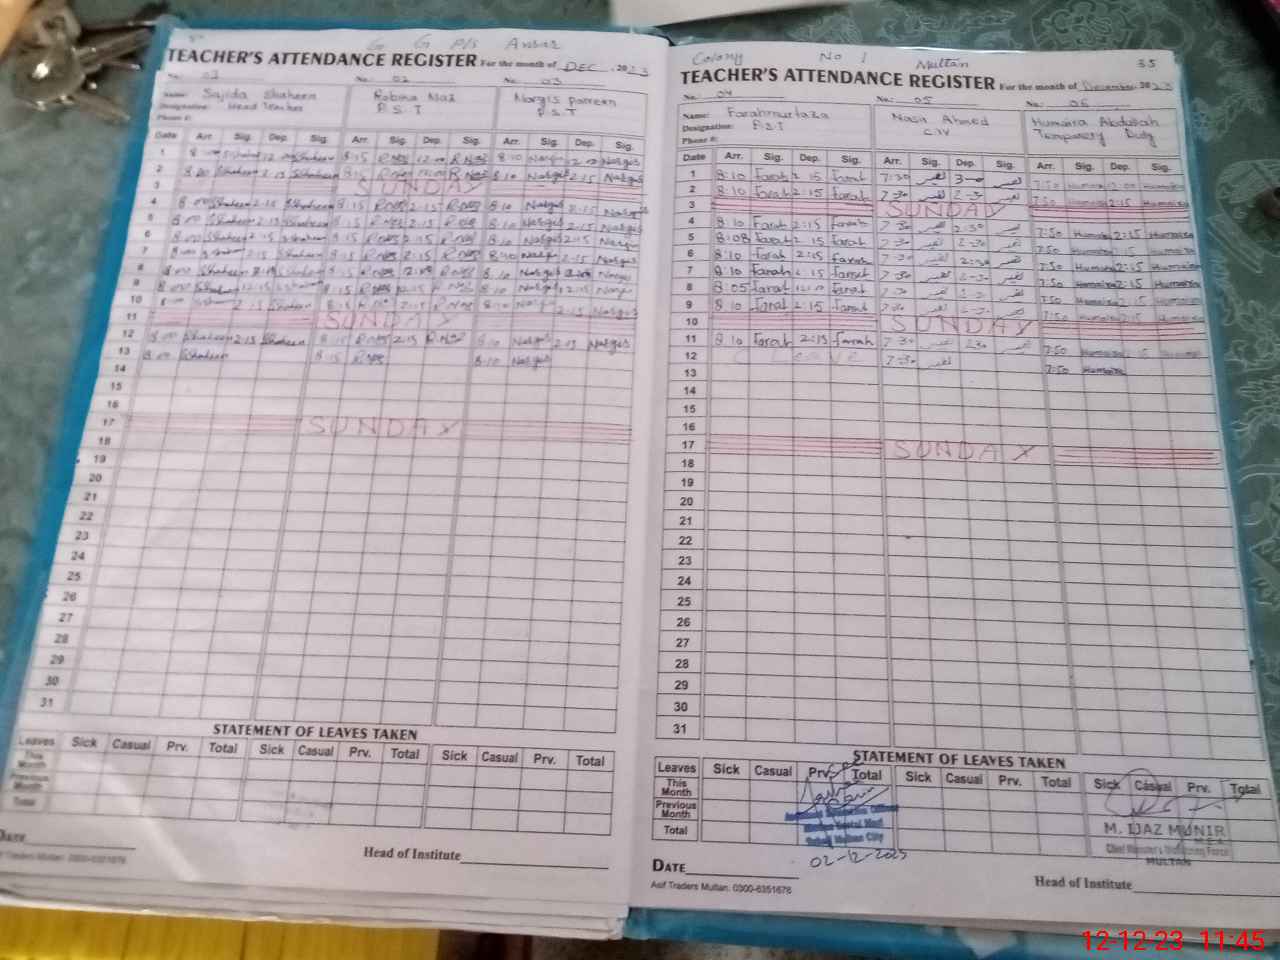 G G P/S Ansar
TEACHER'S ATTENDANCE REGISTER For the month of DEC, 2023
No: 01 No: 02 No: 03
Name: Sajida Shaheen Robina Naz Nargis Parveen
Designation: Head Teacher P.S.T P.S.T
Phone #:
Date Arr. Sig. Dep. Sig. Arr. Sig. Dep. Sig. Arr. Sig. Dep. Sig.
1 8:00 Shaheen 12:00 Shaheen 8:15 R.Naz 12:00 R.Naz 8:10 Nargis 12:00 Nargis
2 8:00 Shaheen 2:15 Shaheen 8:15 R.Naz R.Naz 8:10 Nargis 2:15 Nargis
3 SUNDAY
4 8:00 Shaheen 2:15 Shaheen 8:15 R.Naz 2:15 R.Naz 8:10 Nargis 2:15 Nargis
5 8:00 Shaheen 2:15 Shaheen 8:15 R.Naz 2:15 R.Naz 8:10 Nargis 2:15 Nargis
6 8:00 Shaheen 2:15 Shaheen 8:15 R.Naz 2:15 R.Naz 8:10 Nargis 2:15 Nargis
7 8:00 2:15 Shaheen 8:15 R.Naz 2:15 R.Naz 8:10 Nargis 2:15 Nargis
8 8:00 Shaheen Shaheen 8:15 R.Naz 12:00 R.Naz 8:10 Nargis Nargis
9 8:00 Shaheen 2:15 8:15 R.Naz 2:15 R.Naz 8:10 Nargis 2:15 Nargis
10 8:00 2:15 Shaheen 8:15 2:15 R.Naz 8:10 2:15 Nargis
11 SUNDAY
12 8:00 Shaheen 2:15 Shaheen 8:15 R.Naz 2:15 R.Naz 8:10 Nargis 2:15 Nargis
13 8:00 Shaheen 8:15 R.Naz 8:10 Nargis
14
15
16
17 SUNDAY
18
19
20
21
22
23
24
25
26
27
28
29
30
31
STATEMENT OF LEAVES TAKEN
Leaves Sick Casual Prv. Total Sick Casual Prv. Total Sick Casual Prv. Total
This Month
Previous Month
Total
DATE
Head of Institute
Asif Traders Multan. 0300-6351676
Colony No 1 Multan 35
TEACHER'S ATTENDANCE REGISTER For the month of December 2023
No: 04 No: 05 No: 06
Name: Farah murtaza Nasir Ahmed Humaira Abdullah
Designation: P.S.T C IV Temporary Duty
Phone #:
Date Arr. Sig. Dep. Sig. Arr. Sig. Dep. Sig. Arr. Sig. Dep. Sig.
1 8:10 Farah 2:15 Farah 7:30 3-00 7:50 Humaira 12:00 Humaira
2 8:10 Farah 2:15 Farah 7-30 2-30 7:50 Humaira 2:15 Humaira
3 SUNDAY
4 8:10 Farah 2:15 Farah 7-30 2:30 7:50 Humaira 2:15 Humaira
5 8:08 Farah 2:15 Farah 7-30 2-30 7:50 Humaira 2:15 Humaira
6 8:10 Farah 2:15 Farah 7-30 2:30 7:50 Humaira 2:15 Humaira
7 8:10 Farah 2:15 Farah 7-30 7:50 Humaira 2:15 Humaira
8 8:05 Farah 12:00 Farah 7-30 7:50 Humaira Humaira
9 8:10 Farah 2:15 Farah 7-30 7:50 Humaira 2:15 Humaira
10 SUNDAY
11 8:10 Farah 2:15 Farah 7-30 2:30 7:50 Humaira 2:15 Humaira
12 C Leave 7-30 7:50 Humaira
13
14
15
16
17 SUNDAY
18
19
20
21
22
23
24
25
26
27
28
29
30
31
STATEMENT OF LEAVES TAKEN
Leaves Sick Casual Prv. Total Sick Casual Prv. Total Sick Casual Prv. Total
This Month
Previous Month
Total
02-12-2023
M. IJAZ MUNIR
MEA
Chief Minister's Monitoring Force
MULTAN
DATE
Head of Institute
Asif Traders Multan. 0300-6351676
12-12-23 11:45